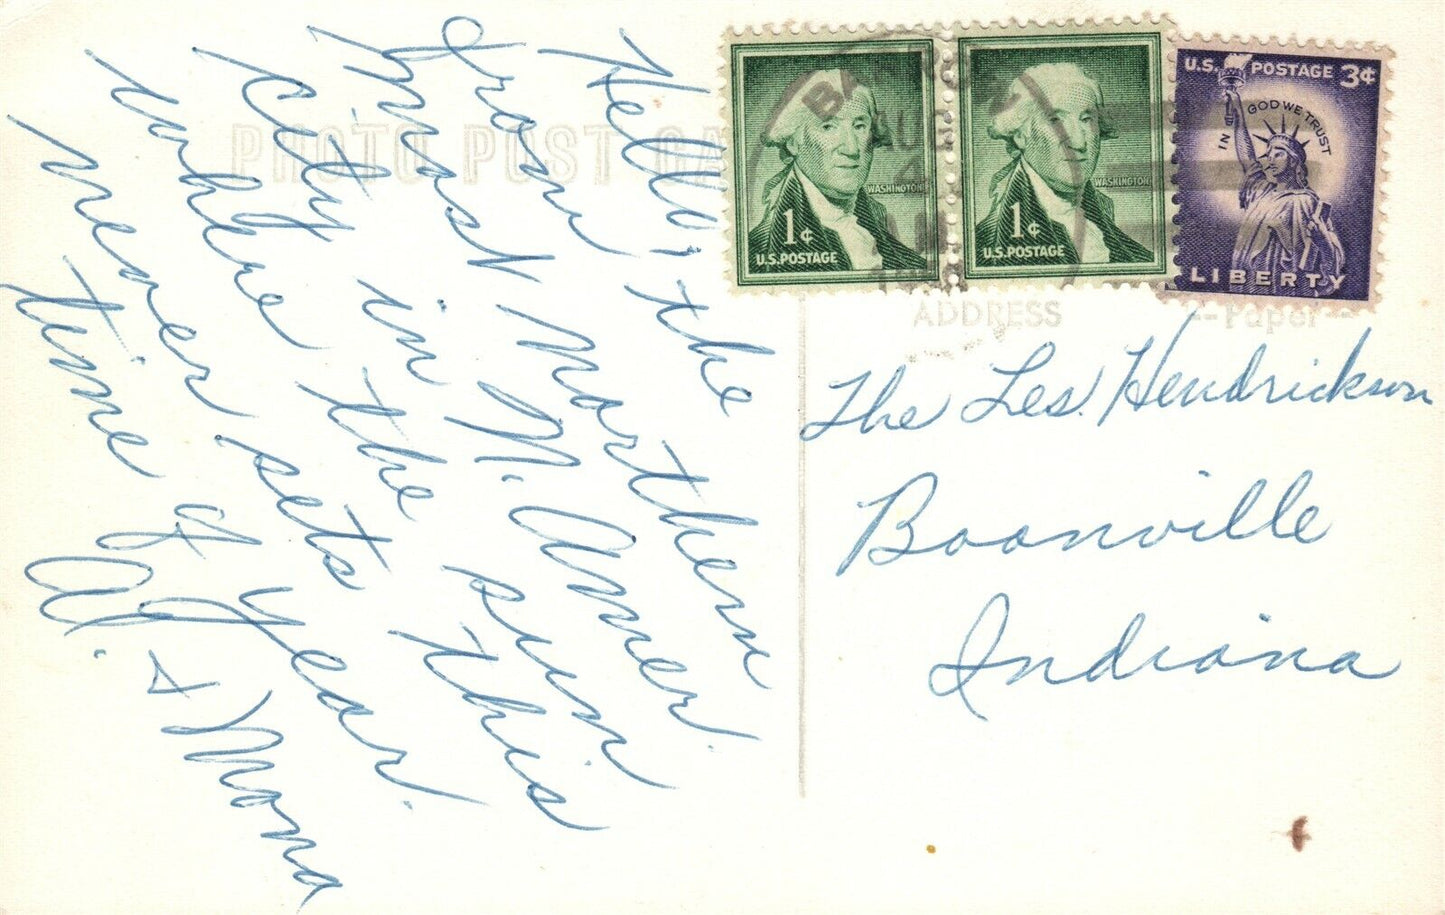 PHOTO POST CA
Hello, the
from
Most Northern
City in N. Amer.
where the sun
never sets this
time of year.
Al. & Mona
WASHINGTON
1¢
U.S. POSTAGE
WASHINGTON
1¢
U.S. POSTAGE
U.S. POSTAGE 3¢
IN GOD WE TRUST
LIBERTY
AUG
4
ADDRESS
--Paper--
The Les. Hendrickson
Boonville
Indiana